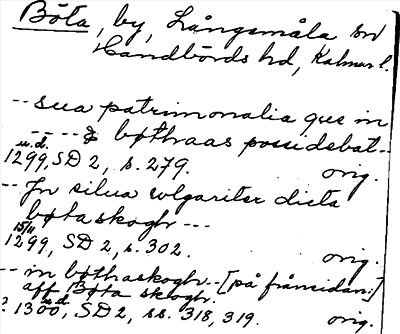 Böta, by, Långemåla sn
Handbörds hd, Kalmar l.
-- sua patrimonalia que in
---- & bøthaas possidebat --
u.d.
1299, SD 2, s. 279. orig.
-- In silua wlgariter dicta
bøtaskoghr ---
15/11
1299, SD 2, s. 302. orig.
-- in bøthaskoghr -- [på frånsidan:]
aff Bøta skoghr.
u.d.
? 1300, SD 2, ss. 318, 319. orig.